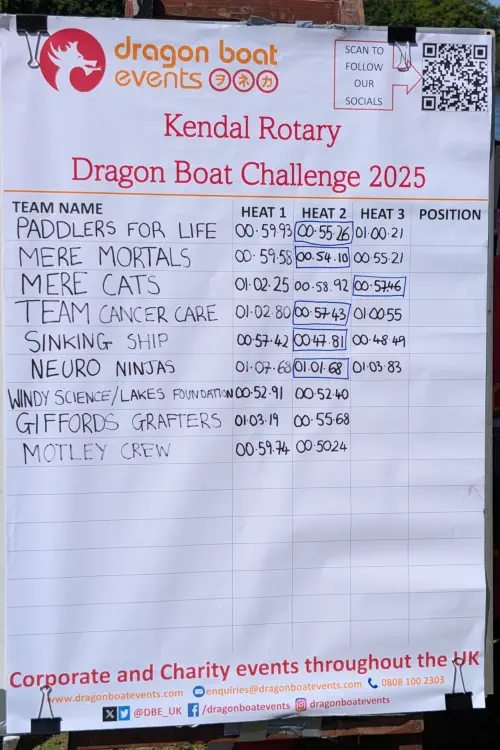 dragon boat
events ヲネカ
SCAN TO
FOLLOW
OUR
SOCIALS
Kendal Rotary
Dragon Boat Challenge 2025
TEAM NAME HEAT 1 HEAT 2 HEAT 3 POSITION
PADDLERS FOR LIFE 00.59.93 00.55.26 01.00.21
MERE MORTALS 00.59.58 00.54.10 00.55.21
MERE CATS 01.02.25 00.58.92 00.57.46
TEAM CANCER CARE 01.02.80 00.57.43 01.00.55
SINKING SHIP 00.57.42 00.47.81 00.48.49
NEURO NINJAS 01.07.68 01.01.68 01.03.83
WINDY SCIENCE/LAKES FOUNDATION 00.52.91 00.52.40
GIFFORDS GRAFTERS 01.03.19 00.55.68
MOTLEY CREW 00.59.74 00.50.24
Corporate and Charity events throughout the UK
www.dragonboatevents.com enquiries@dragonboatevents.com 0808 100 2303
@DBE_UK /dragonboatevents dragonboatevents